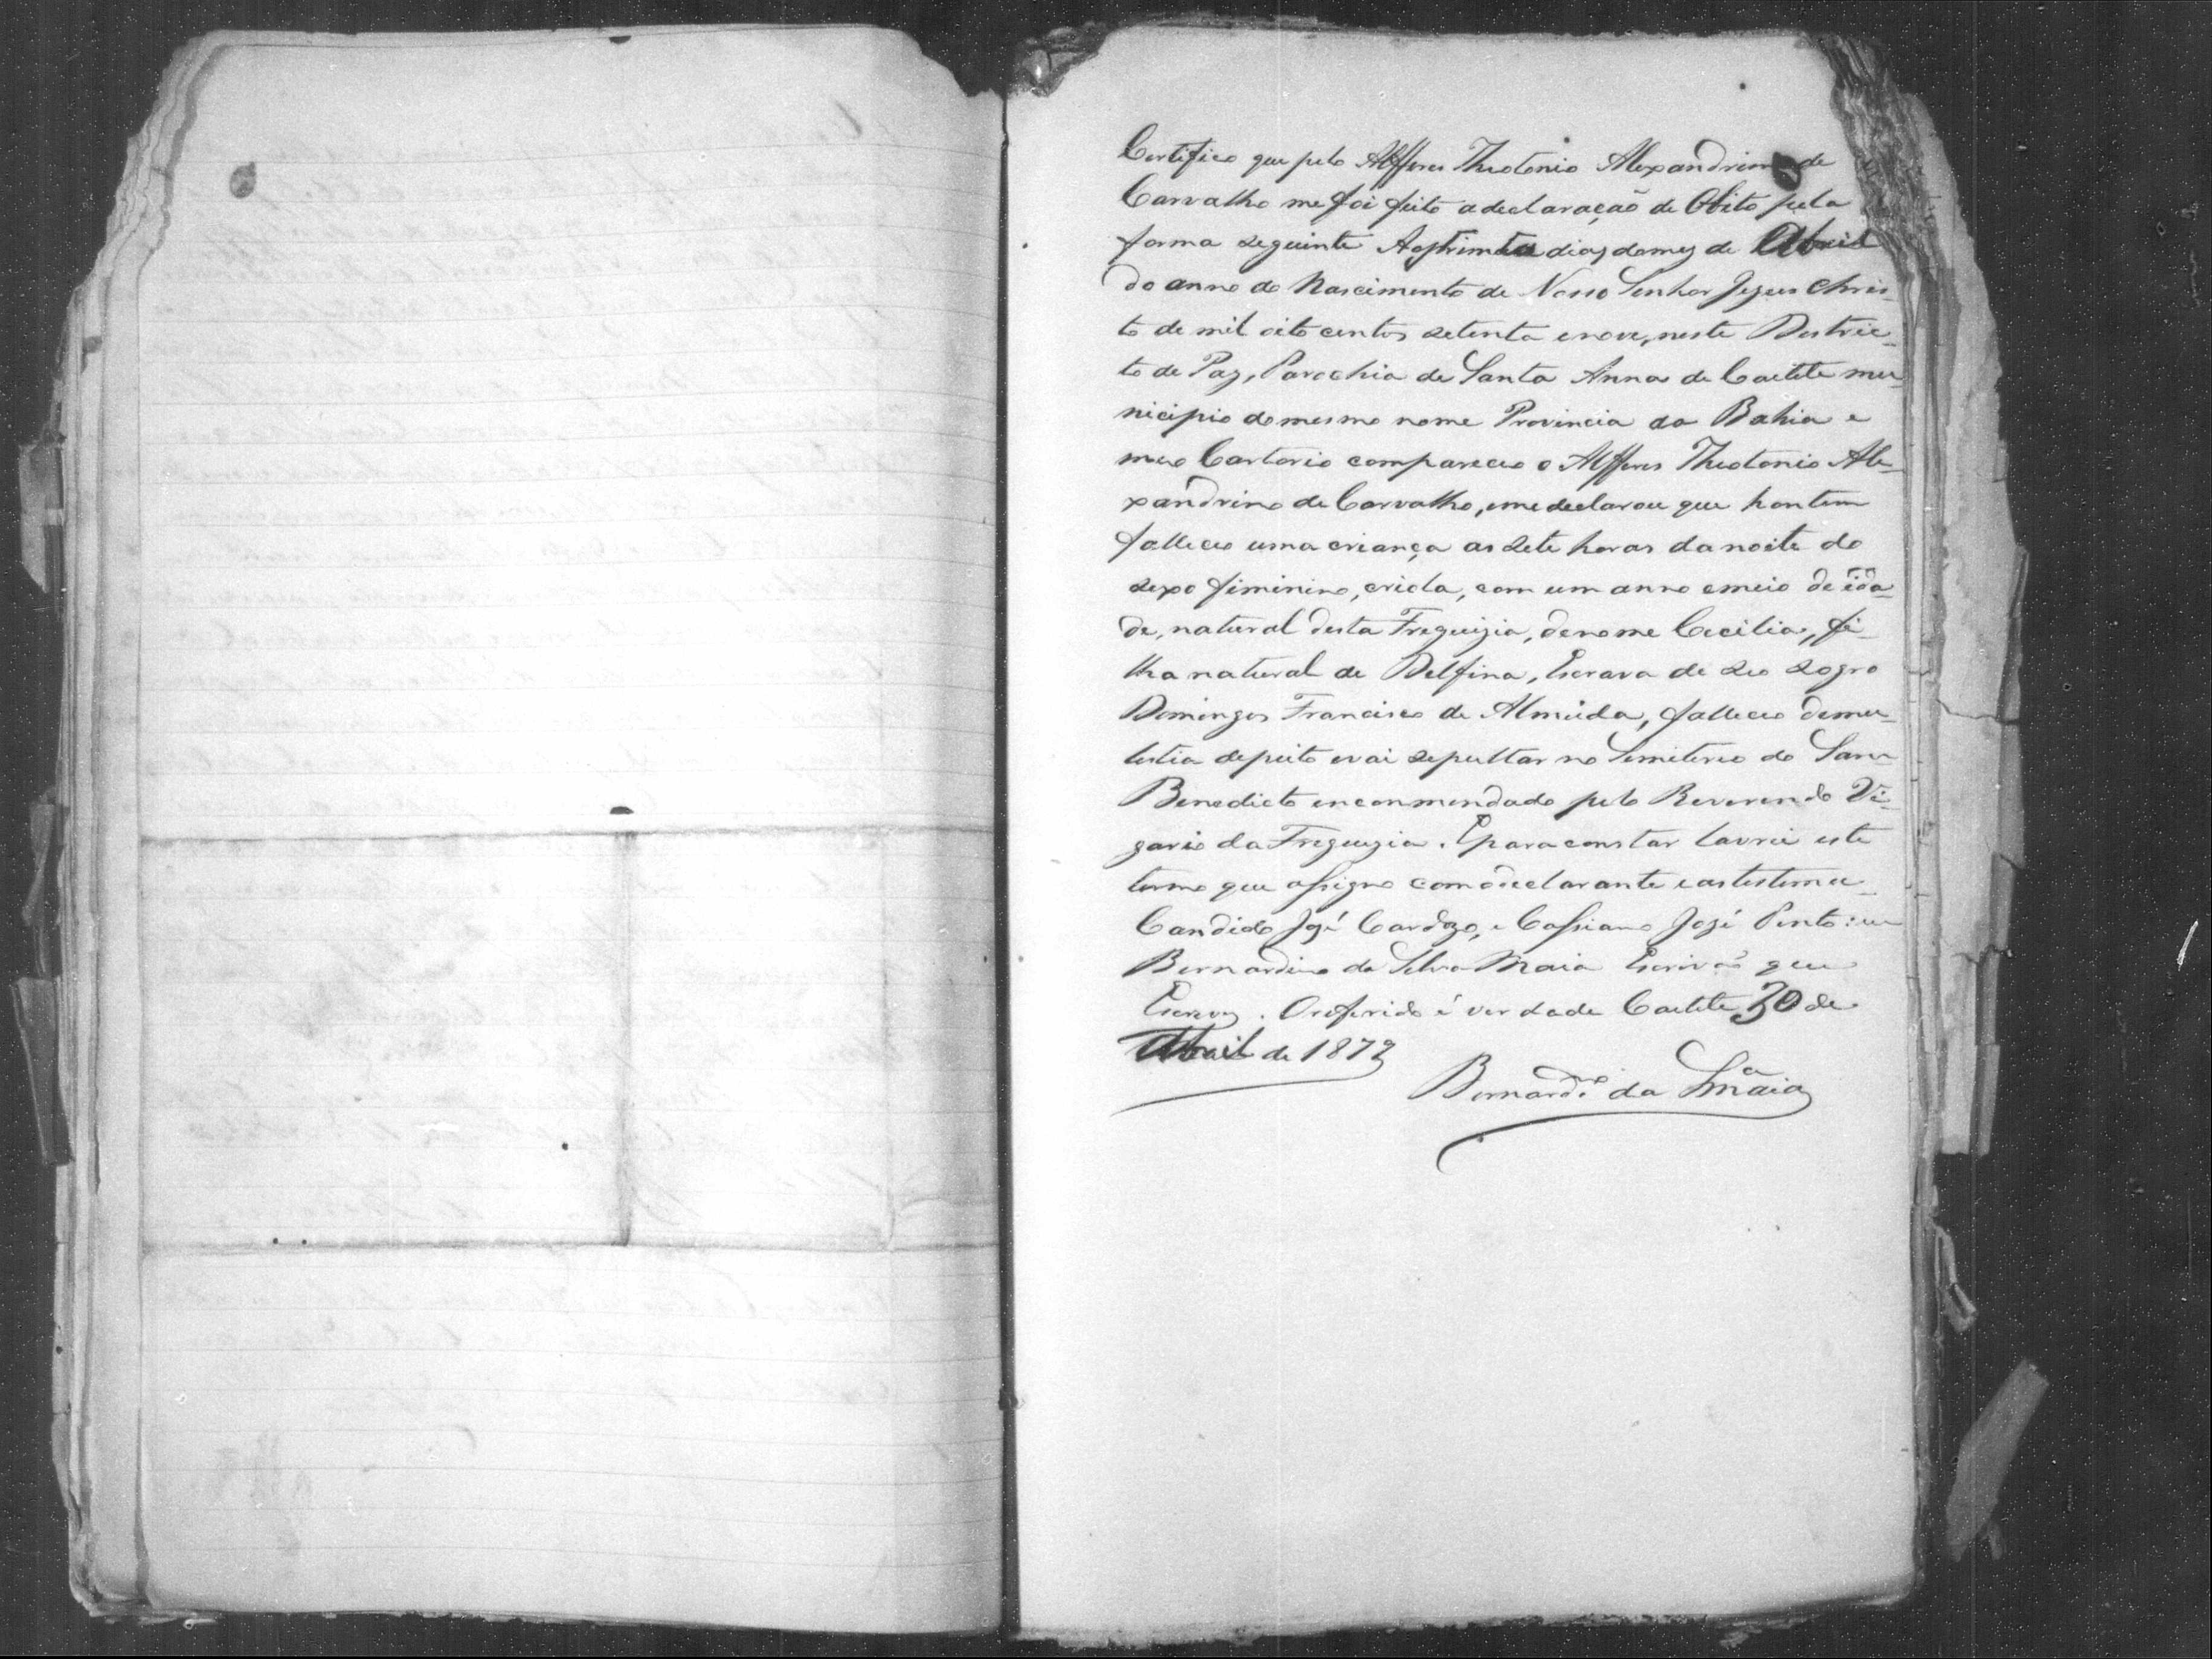 Certifico que pelo Alfferes Theotonio Alexandrino de
Carvalho me foi feito a declaração de Obito pela
forma seguinte Aos trinta dias do mez de Abril
do anno do Nascimento de Nosso Senhor Jezus Chris-
to de mil oito centos setenta e nove, neste Destric-
to de Paz, Parochia de Santa Anna de Caetite mu-
nicipio do mesmo nome Provincia da Bahia e
meo Cartorio compareceo o Alfferes Theotonio Ale-
xandrino de Carvalho, e me declarou que hontem
falleceo uma criança as sete horas da noite do
sexo feminino, criola, com um anno e meio de ida-
de, natural desta Freguizia, de nome Cecilia, fi-
lha natural de Delfina, Escrava de seo sogro
Domingos Francisco de Almeida, falleceo de mo-
lestia de peito e vai sepultar no Semiterio de Sam
Benedicto encommendado pelo Reverendo Vi-
gario da Freguezia. E para constar lavrei este
termo que assigno com o declarante e as testemu-
Candido José Cardozo, e Cassiano José Pinto: eu
Bernardino da Silva Maia Escrivão que
Escrevy. O referido é verdade Caetite 30 de
Abril de 1879
Bernardº da Sª Maia